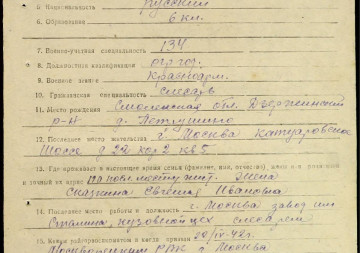 5. Национальность русский
6. Образование 6 кл.
7. Военно-учетная специальность 134
8. Должностная квалификация
9. Военное звание Красноарм.
10. Гражданская специальность слесарь
11. Место рождения Смоленская обл.
р-н д.
12. Последнее место жительства г. Москва
Шоссе д 22 кор 2 кв 5
13. Где проживает в настоящее время семья (фамилия, имя, отчество)
жена
Евгения Ивановна
14. Последнее место работы и должность г. Москва завод им
Сталина, кузовной цех слесарем
15. Каким райгорвоенкоматом и когда призван 20/IV-42г.
Москворецким РВК г Москва